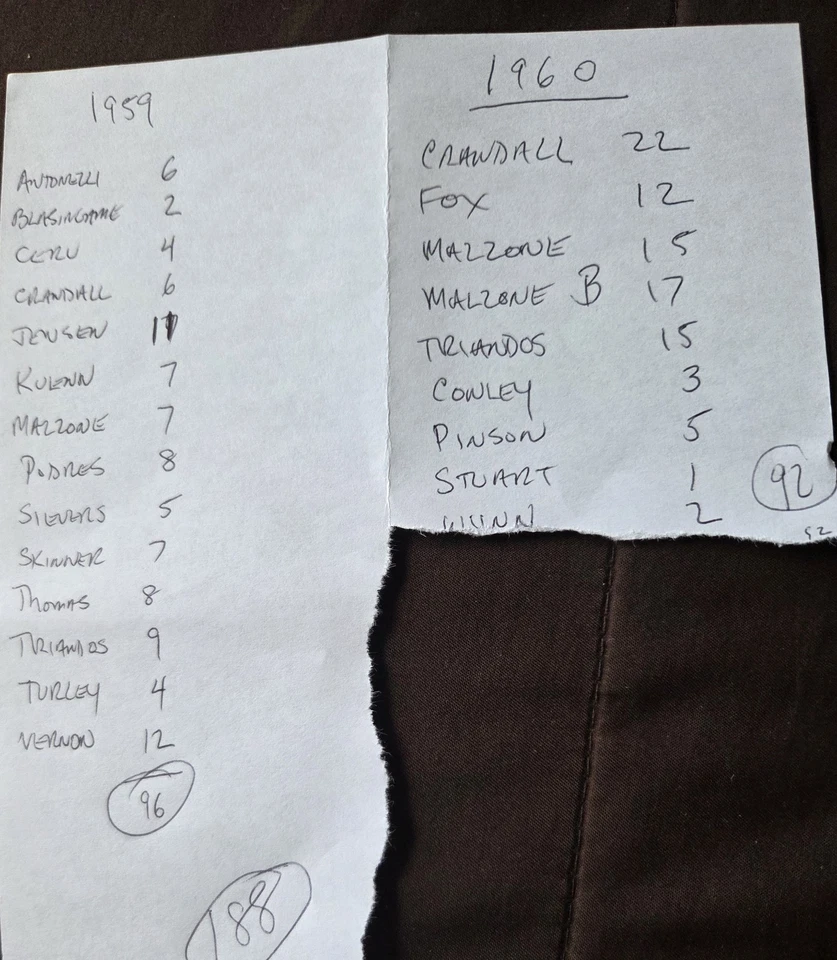 1959
ANTONELLI 6
BLASINGAME 2
CERV 4
CRANDALL 6
JENSEN 11
KUENN 7
MALZONE 7
PODRES 8
SIEVERS 5
SKINNER 7
THOMAS 8
TRIANDOS 9
TURLEY 4
VERNON 12
96
188
1960
CRANDALL 22
FOX 12
MALZONE 15
MALZONE B 17
TRIANDOS 15
CONLEY 3
PINSON 5
STUART 1
92
2